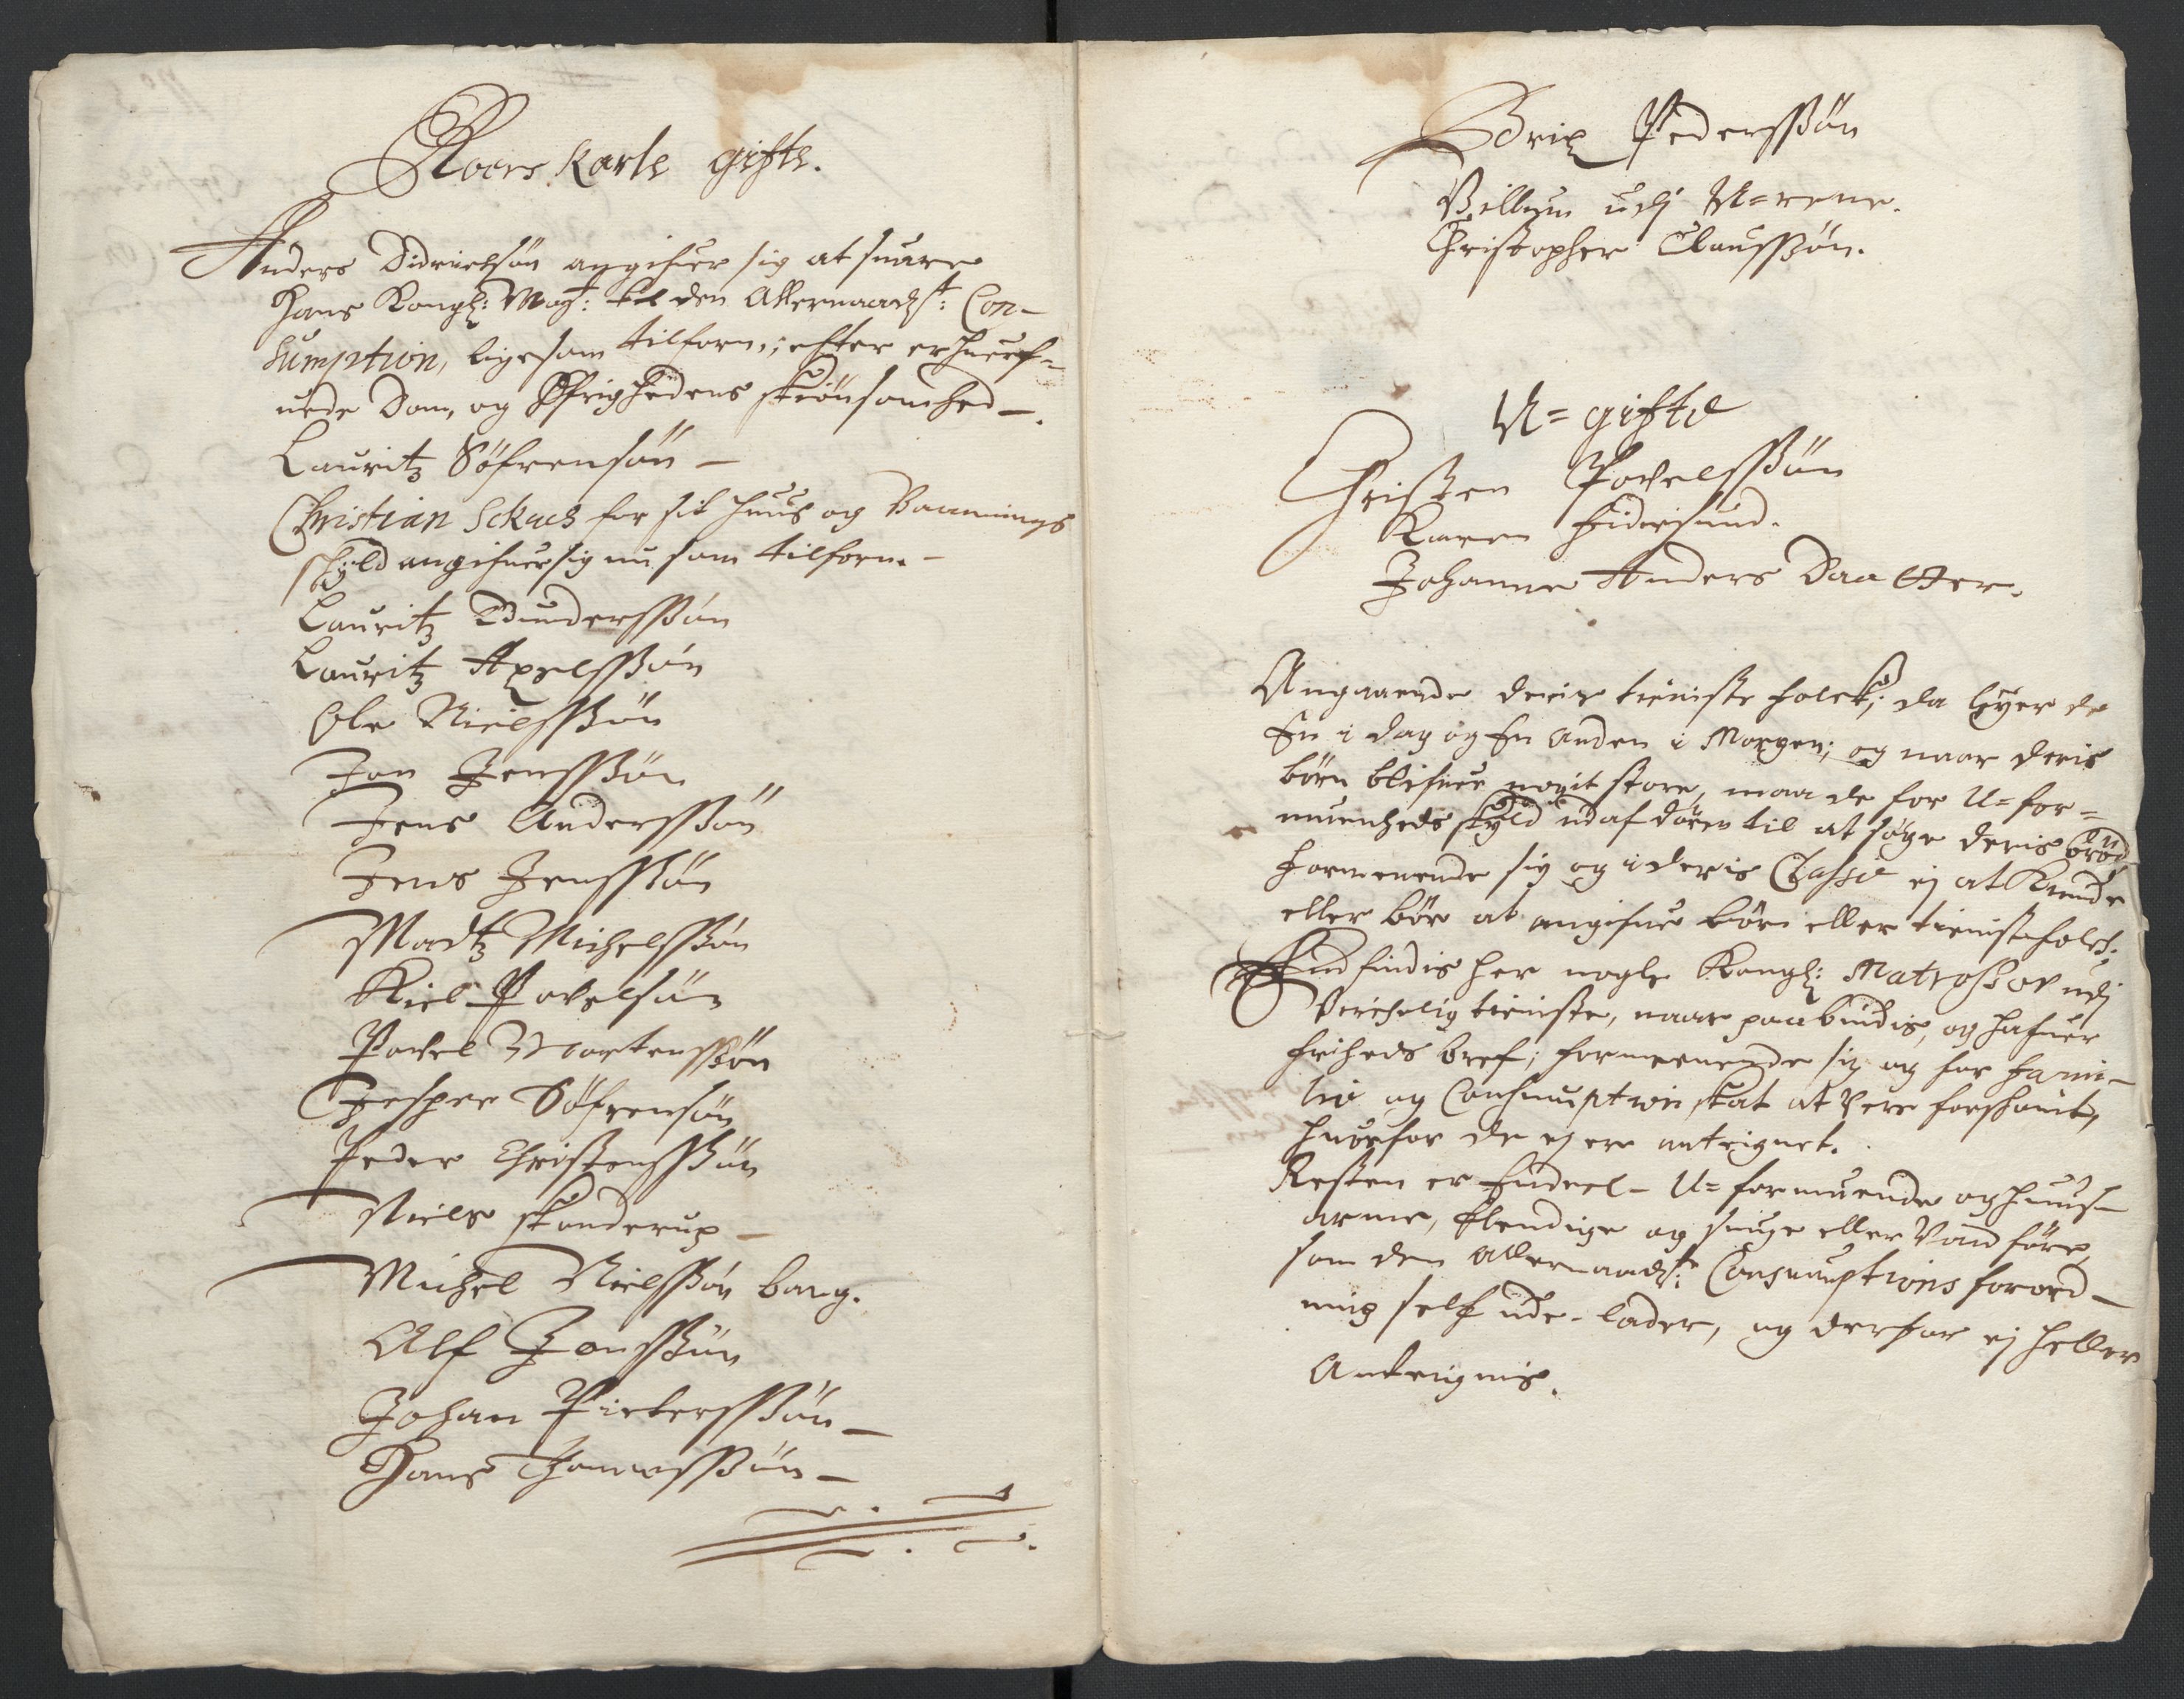 Roers Karle gifte.
Anders Didrichsøn angifuer sig at suare
Hans Kongl: Mayt: til den Allernaadst: Con-
sumption, ligesom tilforn; efter erhuerf-
uede Dom, og Øfrighedens skiønsomhed.
Lauritz Søfrensøn
Christian for sit huus og Vaanings
schyld angifuer sig nu som tilforn.
Lauritz Gunderssøn
Lauritz Axelssøn
Ole Nielssøn
Jon Jenssøn
Jens Anderssøn
Jens Jenssøn
Madtz Michelssøn
Kield Povelsøn
Povel Mortenssøn
Jesper Søfrensøn
Peder Christenssøn
Niels skanderup
Michel Nielssøn bang.
Alf Jonssøn
Johan Pieterssøn
Hans Thomessøn
Brix Pederssøn
Villum udj
Christopher Claussøn.
U=gifte
Christen Povelssøn
Karen
Johanne Anders Daatter.
Angaaende deris tieniste folck; da leyer de
En i dag og En anden i Morgen; og naar deris
børn blifuer noget store, maa de for U=for=
muenheds skyld ud af dören til at søge deris brød
formenende sig og i deris Classe ej at Kunde
eller bør at angifue børn eller tienistefolck.
End findis her nogle Kongl: Matroser udj
Virchelig tieniste, naar paabudis, og hafuer
friheds bref; formeenende sig og for fami-
lie og Consumption skat at vere forskaanit,
huorfor de ej ere anteignet.
Resten er Endeel U=formuende og huus-
arme, Elendige og siuge eller Vanföre,
som den allernaadst: Consumptions forord-
ning self ude-lader, og derfor ej heller
Anteignis.